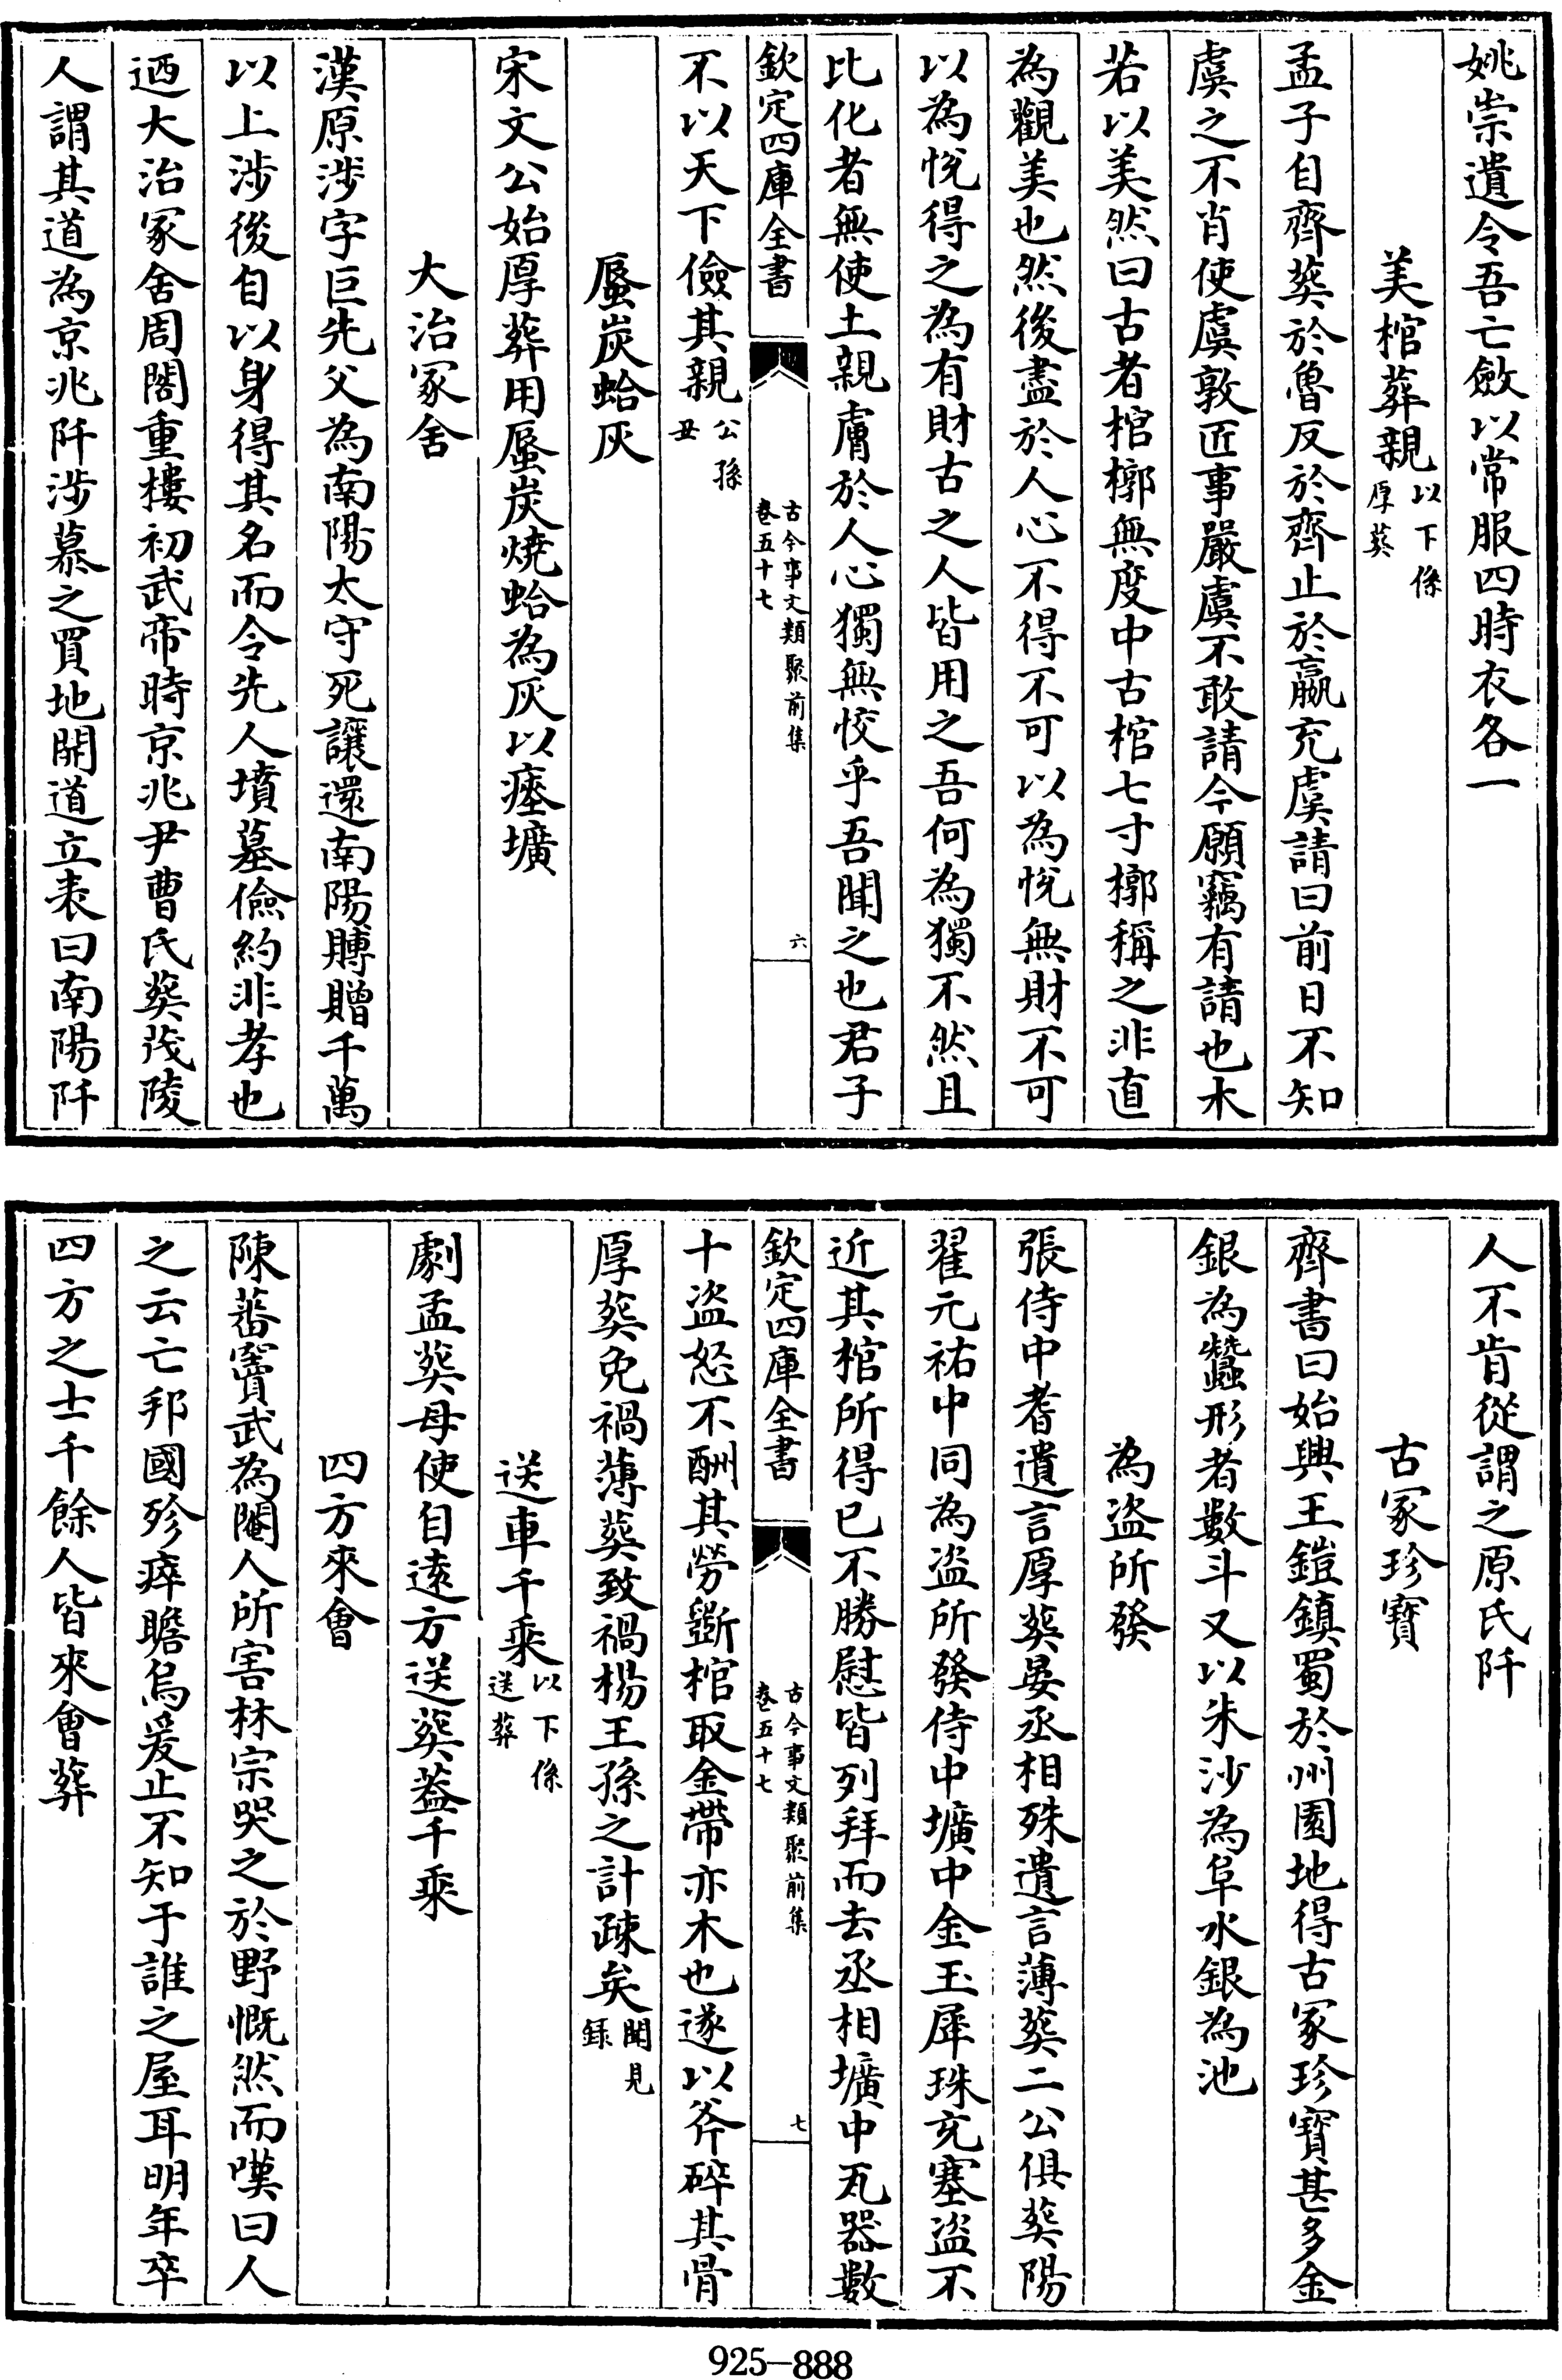 姚崇遺令吾亡斂以常服四時衣各一
美棺葬親以下係厚葬
孟子自齊葬於魯反於齊止於嬴充虞請曰前日不知
虞之不肖使虞敦匠事嚴虞不敢請今願竊有請也木
若以美然曰古者棺槨無度中古棺七寸槨稱之非直
為觀美也然後盡於人心不得不可以為悅無財不可
以為悅得之為有財古之人皆用之吾何為獨不然且
比化者無使土親膚於人心獨無恔乎吾聞之也君子
欽定四庫全書 古今事文類聚前集卷五十七 六
不以天下儉其親公孫丑
蜃炭蛤灰
宋文公始厚葬用蜃炭燒蛤為灰以瘞壙
大治冢舍
漢原涉字巨先父為南陽太守死讓還南陽賻贈千萬
以上涉後自以身得其名而令先人墳墓儉約非孝也
迺大治冢舍周閣重樓初武帝時京兆尹曹氏葬茂陵
人謂其道為京兆阡涉慕之買地開道立表曰南陽阡
人不肯從謂之原氏阡
古冢珍寶
齊書曰始興王鎧鎮蜀於州園地得古冢珍寶甚多金
銀為蠶形者數斗又以朱沙為阜水銀為池
為盜所發
張侍中耆遺言厚葬晏丞相殊遺言薄葬二公俱葬陽
翟元祐中同為盜所發侍中壙中金玉犀珠充塞盜不
近其棺所得已不勝慰皆列拜而去丞相壙中瓦器數
欽定四庫全書 古今事文類聚前集卷五十七 七
十盜怒不酬其勞斵棺取金帶亦木也遂以斧碎其骨
厚葬免禍薄葬致禍楊王孫之計疎矣聞見録
送車千乘以下係送葬
劇孟葬母使自遠方送葬葢千乘
四方來會
陳蕃竇武為閹人所害林宗哭之於野慨然而嘆曰人
之云亡邦國殄瘁瞻烏爰止不知于誰之屋耳明年卒
四方之士千餘人皆來會葬
925-888